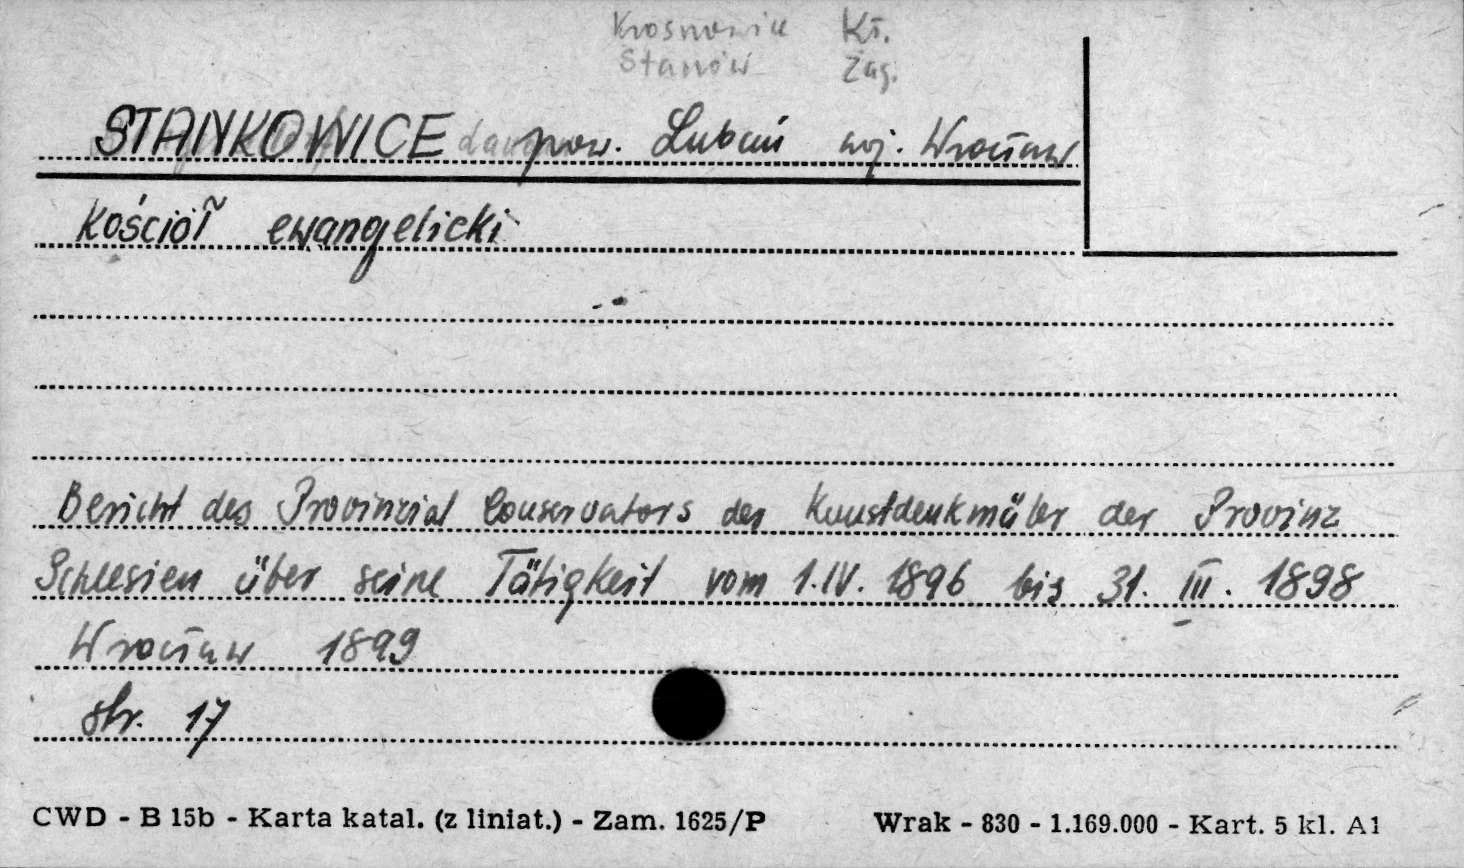 Krosnowice Kł.
Stanów Żag.
STANKOWICE pow. Lubań woj. Wrocław
Kościół ewangelicki
Bericht des Provinzial Conservators der Kunstdenkmäler der Provinz
Schlesien über seine Tätigkeit vom 1.IV. 1896 bis 31. III. 1898
Wrocław 1899
str. 17
CWD - B 15b - Karta katal. (z liniat.) - Zam. 1625/P Wrak - 830 - 1.169.000 - Kart. 5 kl. A1